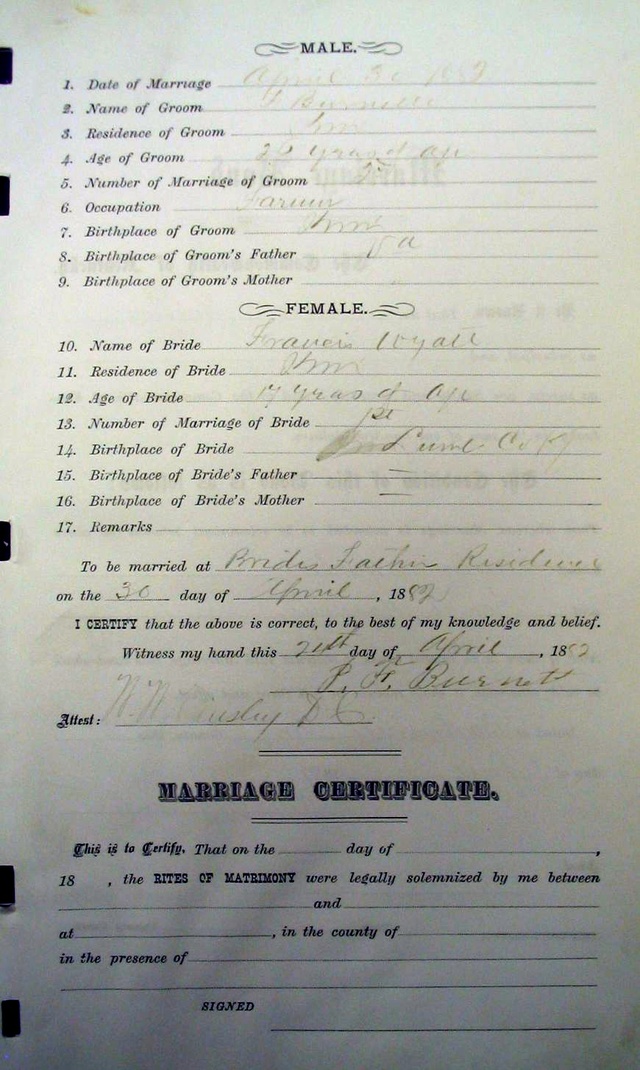 MALE.
1. Date of Marriage April 30 1882
2. Name of Groom Burnett
3. Residence of Groom
4. Age of Groom years of age
5. Number of Marriage of Groom
6. Occupation Farmer
7. Birthplace of Groom
8. Birthplace of Groom's Father Va
9. Birthplace of Groom's Mother
FEMALE.
10. Name of Bride Francis Wyatt
11. Residence of Bride
12. Age of Bride 17 years of age
13. Number of Marriage of Bride 1st
14. Birthplace of Bride
15. Birthplace of Bride's Father —
16. Birthplace of Bride's Mother —
17. Remarks
To be married at Brides Father Residence
on the 30 day of April, 1882
I CERTIFY that the above is correct, to the best of my knowledge and belief.
Witness my hand this day of April, 1882
F. Burnett
Attest: D C
MARRIAGE CERTIFICATE.
This is to Certify, That on the day of ,
18 , the RITES OF MATRIMONY were legally solemnized by me between
and
at , in the county of
in the presence of
SIGNED